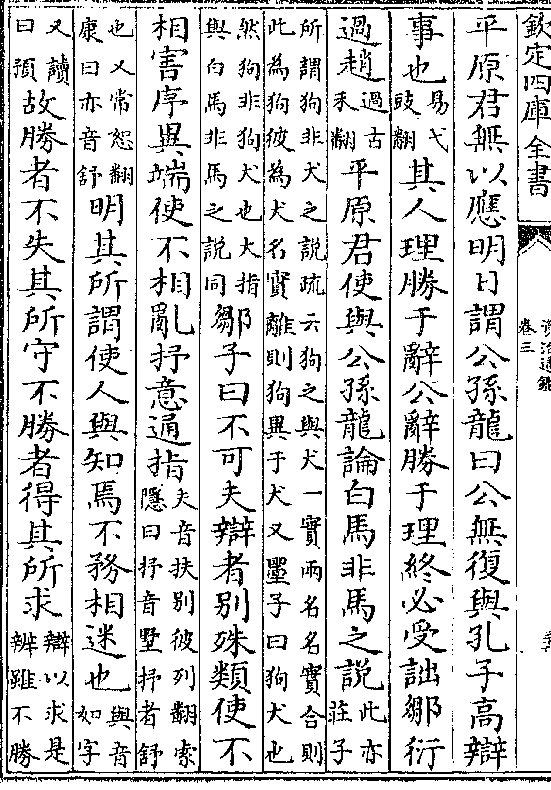 欽定四庫全書
資治通鑑
卷三
平原君無以應明日謂公孫龍曰公無復與孔子高辯
事也易弋豉翻其人理勝于辭公辭勝于理終必受詘鄒衍
過趙過古禾翻平原君使與公孫龍論白馬非馬之說此亦莊子
所謂狗非犬之說疏云狗之與犬一實兩名名實合則
此為狗彼為犬名實離則狗異于犬又墨子曰狗犬也
然狗非狗犬也大指與白馬非馬之說同鄒子曰不可夫辯者别殊類使不
相害序異端使不相亂抒意通指夫音扶别彼列翻索隱曰抒音墅抒者舒
也又常恕翻康曰亦音舒明其所謂使人與知焉不務相迷也與音如字
又讀曰預故勝者不失其所守不勝者得其所求辯以求是辨雖不勝